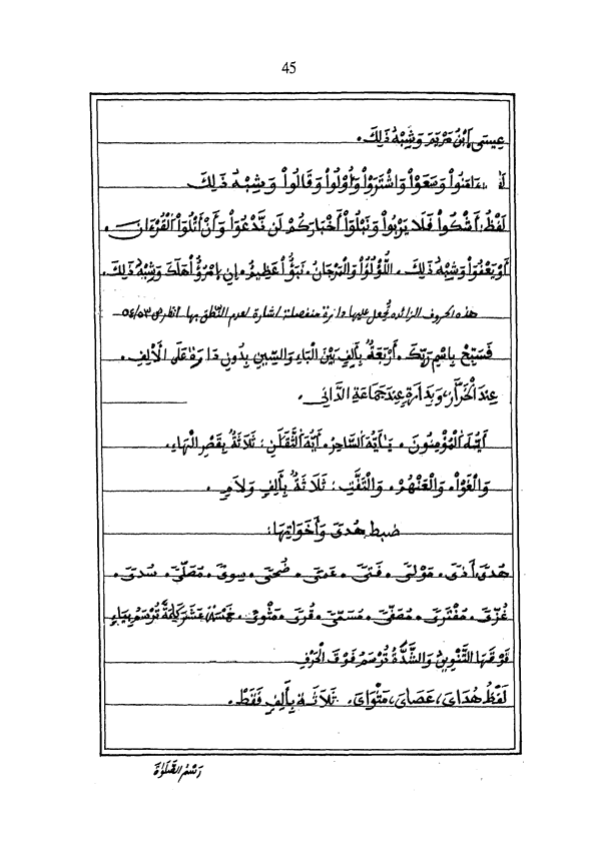 45
عِيسَى اَبْنُ مَرْيَمَ وَشِبْهُ ذَلِكَ .
ءَامَنُواْ وَسَعَوْاْ وَاشْتَرَوُاْ وَأُوْلُواْ وَقَالُواْ وَشِبْهُ ذَلِكَ
لَفْظُ، أَشْكُواْ فَلَا يَرْبُواْ وَنَبْلُوَاْ أَخْبَارَكُمْ لَن نَّدْعُوَاْ وَأَنْ أَتْلُوَاْ الْقُرْءَانَ .
أَوْ يَعْفُوَاْ وَشِبْهُ ذَلِكَ . اللُّؤْلُؤُاْ وَالْمَرْجَانُ . نَبَؤٌاْ عَظِيمٌ . إِنِ اِمْرُؤٌاْ هَلَكَ وَشِبْهُ ذَلِكَ .
هذه الحروف الزائده تُجعل عليها دائرة منفصلة إشارة لعدم النّطق بها انظر ص
فَسَبِّحْ بِاسْمِ رَبِّكَ . أَرْبَعَةٌ بِأَلِفٍ بَيْنَ الْبَاءِ وَالسِّينِ بِدُونِ دَارَةٍ عَلَى الْأَلِفِ .
عِندَ الْخَرَّازِ، وَبِدَارَةٍ عِندَ جَمَاعَةِ الدَّانِي .
أَيُّهَ اَلْمُؤْمِنُونَ . يَٰأَيُّهَ اَلسَّاحِرُ . أَيُّهَ اَلثَّقَلَٰنِ : ثَلَاثَةٌ بِقَصْرِ الْهَاءِ .
وَالْغَوْاْ . وَالْعَنْهُمْ . وَالْتَفَّتِ : ثَلَاثَةٌ بِأَلِفٍ وَلَامٍ .
ضبط هُدىً وَأَخَوَاتِهَا :
هُدىً، أَذىً . مَوْلىً . فَتىً . عَمىً . ضُحىً . سِوىً . مُصَلّىً . سُدىً .
غُزّىً . مُفْتَرىً . مُصَفّىً . مُسَمّىً . قُرىً . مَثْوىً . خَمْسَةَ عَشَرَ كَلِمَةً تُرْسَمُ بِيَاءٍ
فَوْقَهَا التَّنْوِينُ وَالشَّدَّةُ تُرْسَمُ فَوْقَ الْحَرْفِ
لَفْظُ هُدَايَ، عَصَايَ، مَثْوَايَ . ثَلَاثَةٌ بِأَلِفٍ فَقَطْ .
رَسْمُ الصَّلَوٰةَ